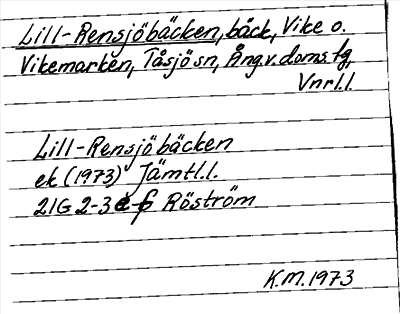 Lill-Rensjöbäcken, bäck, Vike o.
Vikemarken, Tåsjö sn, Ång.v.doms.fg,
Vnrl.l.
Lill-Rensjöbäcken
ek (1973) Jämtl.l.
21G 2-3 e-f Röström
K.M.1973